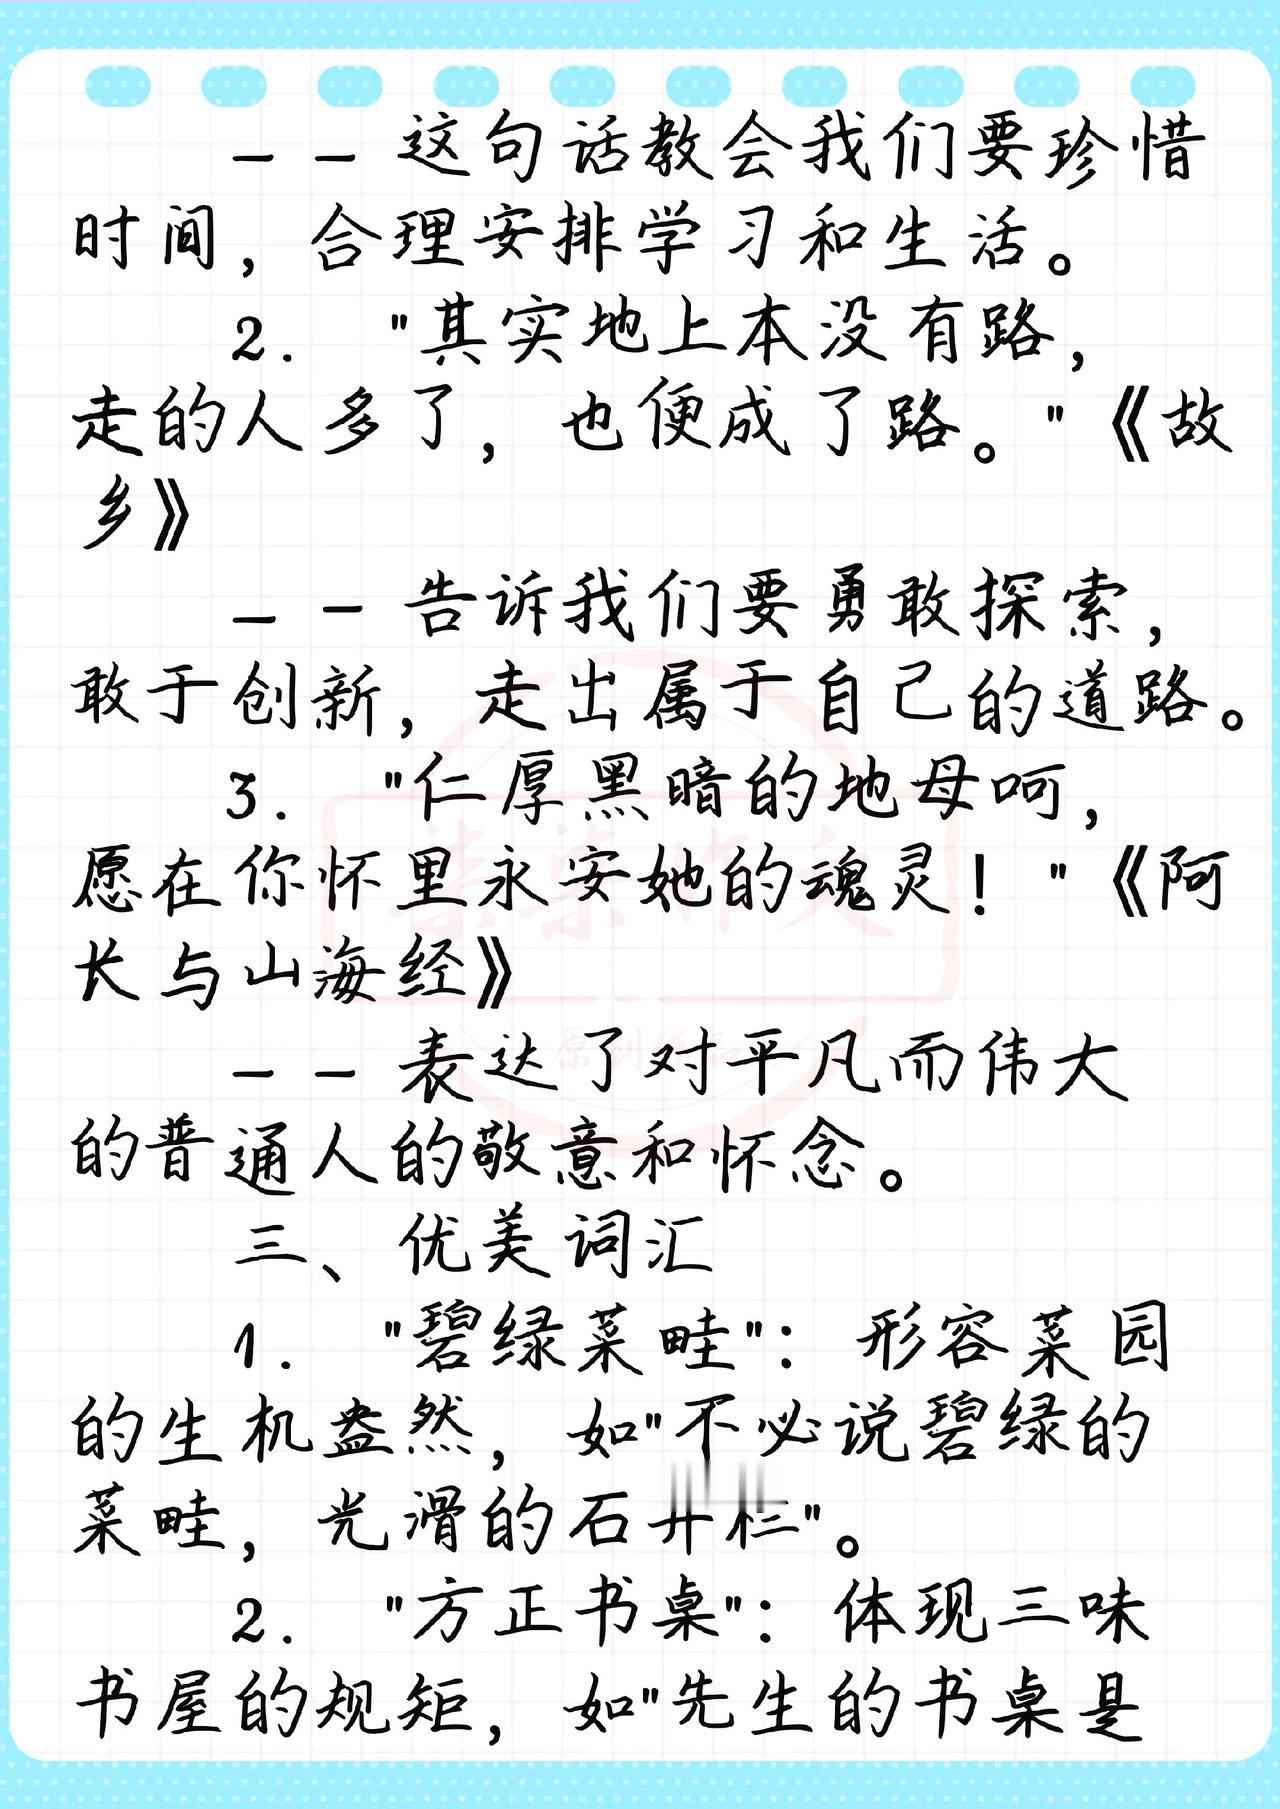 --这句话教会我们要珍惜
时间，合理安排学习和生活。
2. "其实地上本没有路，
走的人多了，也便成了路。"《故
乡》
--告诉我们要勇敢探索，
敢于创新，走出属于自己的道路。
3. "仁厚黑暗的地母呵，
愿在你怀里永安她的魂灵！"《阿
长与山海经》
--表达了对平凡而伟大
的普通人的敬意和怀念。
三、优美词汇
1. "碧绿菜畦"：形容菜园
的生机盎然，如"不必说碧绿的
菜畦，光滑的石井栏"。
2. "方正书桌"：体现三味
书屋的规矩，如"先生的书桌是